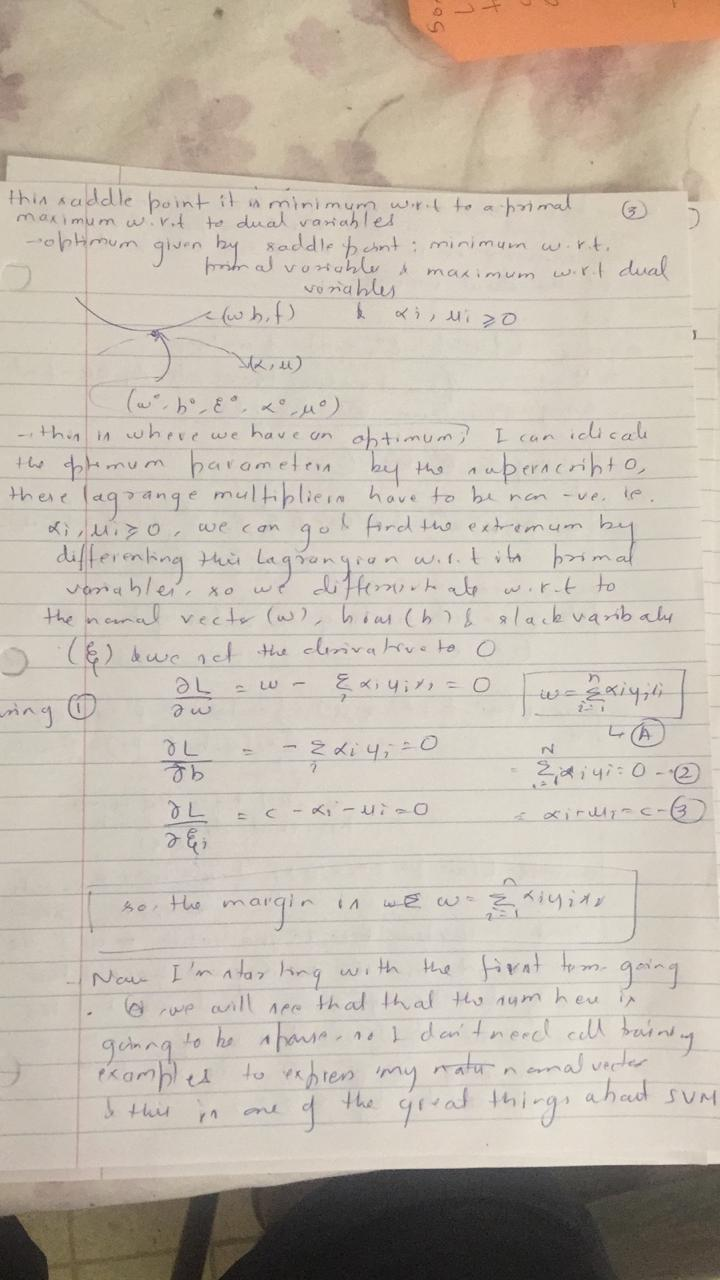 this saddle point it is minimum w.r.t to a primal ③
maximum w.r.t to dual variables
→optimum given by saddle point : minimum w.r.t.
primal variable & maximum w.r.t dual
variables
(w b, f) & αi, μi ≥ 0
(α, μ)
(w°, b°, ξ°, α°, μ°)
→ this is where we have an optimum, I can idicate
the optimum parameters by the superscript 0,
these lagrange multipliers have to be non -ve. ie.
αi, μi ≥ 0, we can go & find the extremum by
differenting this Lagrangian w.r.t its primal
variables, so we differentiate w.r.t to
the normal vector (w), bias (b) & slack
(ξ) & we set the derivative to 0
①
∂L/∂w = w - Σi αi yi xi = 0 w = Σ(i=1 to n) αi yi xi
↳ Ⓐ
∂L/∂b = - Σi αi yi = 0 = Σ(i=1 to N) αi yi = 0 - ②
∂L/∂ξi = c - αi - μi = 0 = αi + μi = c - ③
so, the margin is w = Σ(i=1 to n) αi yi xi
- Now I'm starting with the first term going
we will see that that the sum here is
going to be sparse, so I don't need all training
examples to express my normal vector
& this is one of the great things about SVM